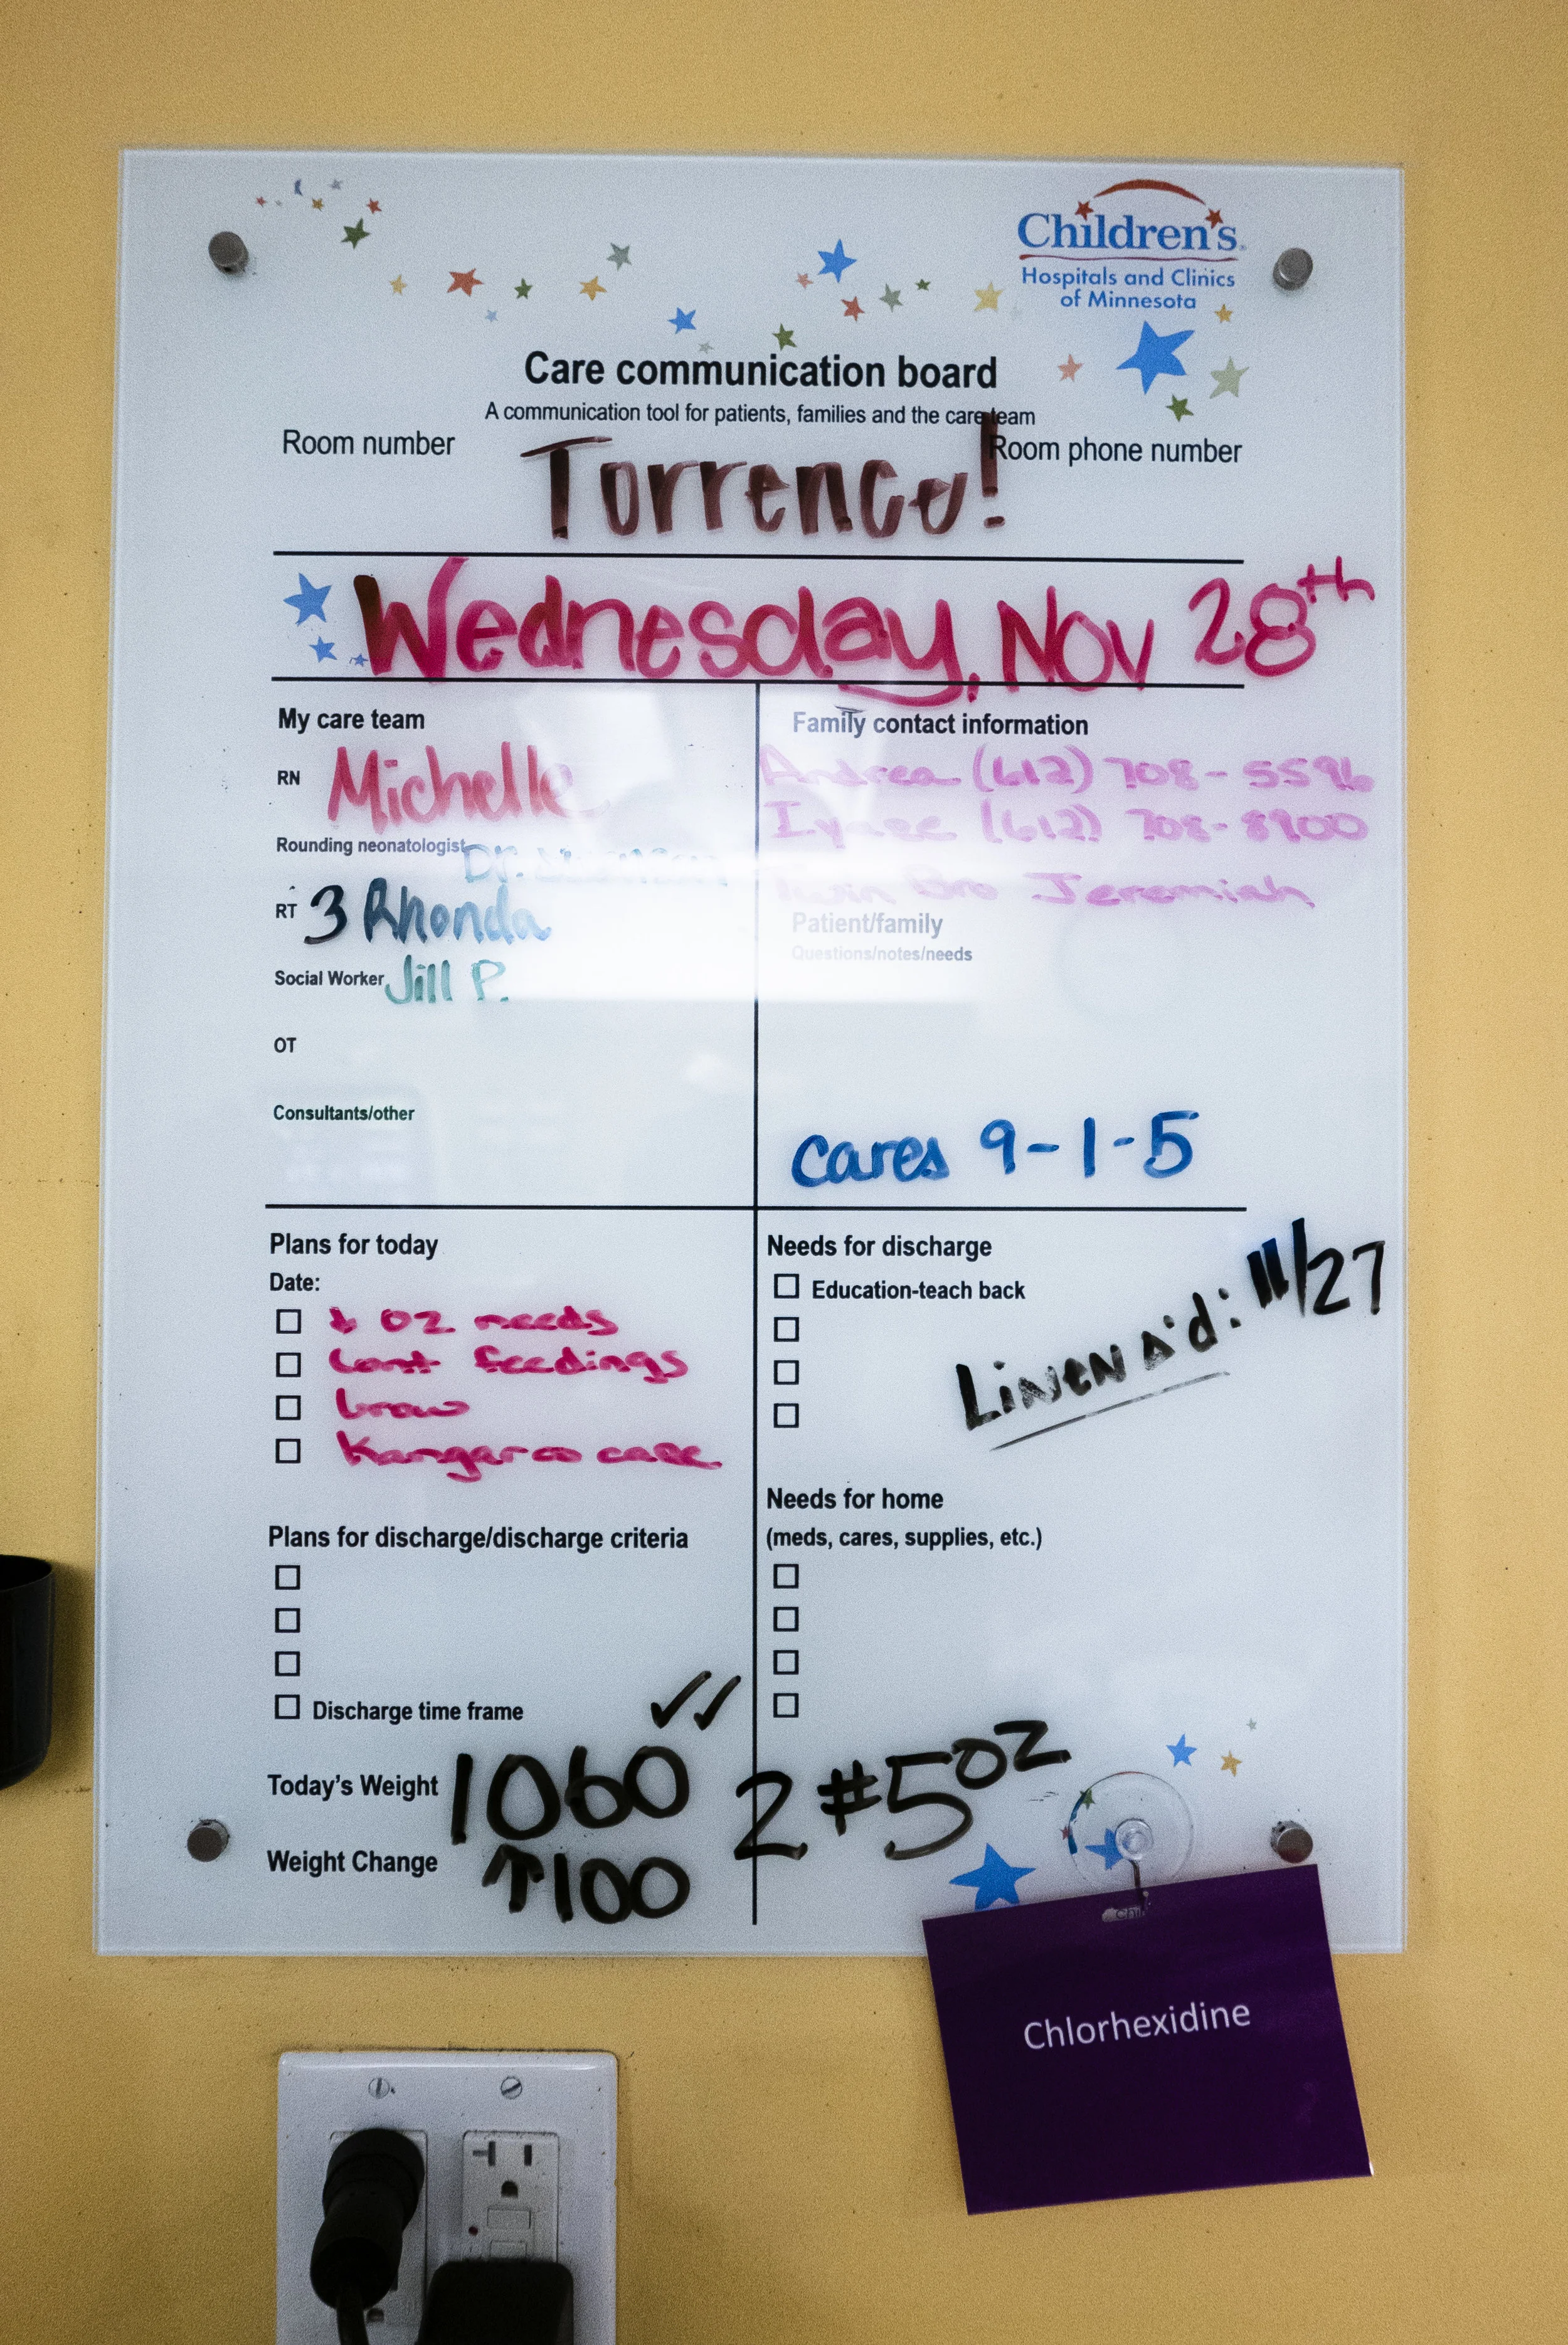 Children's
Hospitals and Clinics
of Minnesota
Care communication board
A communication tool for patients, families and the care team
Room number
Room phone number
Torrence!
Wednesday, Nov 28th
My care team
RN Michelle
Rounding neonatologist Dr.
RT 3 Rhonda
Social Worker Jill P.
OT
Consultants/other
Family contact information
Andrea (612) 708-5596
(612) 708-8900
Bro Jeremiah
Patient/family
Questions/notes/needs
Cares 9-1-5
Plans for today
Date:
↓ O2 needs
Cont feedings
Grow
Kangaroo care
Needs for discharge
Education-teach back
Linen Δ'd: 11/27
Plans for discharge/discharge criteria
Discharge time frame
Needs for home
(meds, cares, supplies, etc.)
✓✓
Today's Weight 1060 2 #5 oz
Weight Change ↑100
Chlorhexidine